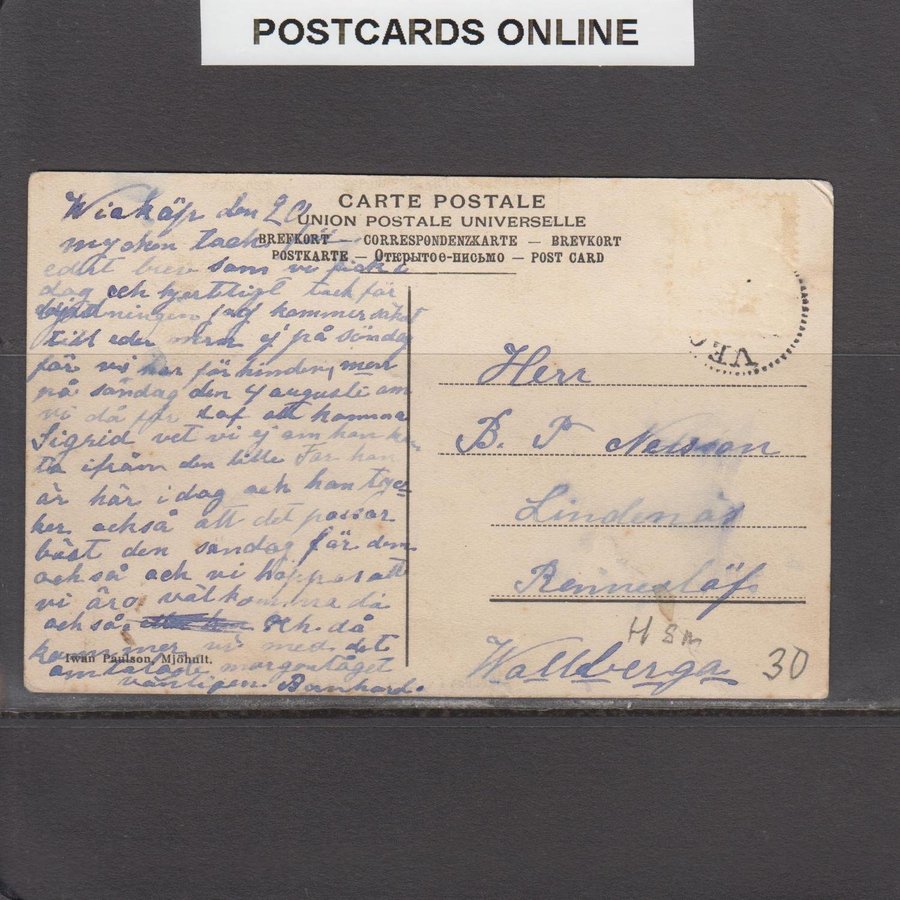 POSTCARDS ONLINE
CARTE POSTALE
UNION POSTALE UNIVERSELLE
BREFKORT — CORRESPONDENZKARTE — BREVKORT
POSTKARTE — Открытое-письмо — POST CARD
den 20
mycken tack för
edert bref som vi fick i
dag och hjertligt tack för
bjudningen jag kommer
till eder men ej på söndag
för vi har förhinder, men
på söndag den 4 augusti om
vi då får lof att komma
Sigrid vet vi ej om han kan
ta ifrån den lille Far han
är här i dag och han tyc-
ker också att det passar
bäst den söndag för dem
också och vi hoppas att
vi äro välkomna då
också. Och då
kommer vi med det
omtalade morgontåget
vänligen Bernhard.
Iwan Paulson, Mjöhult.
VEG
Herr
B. P Nelsson
Lindenäs
Rennesläfs
Wallberga
H 8 m
30